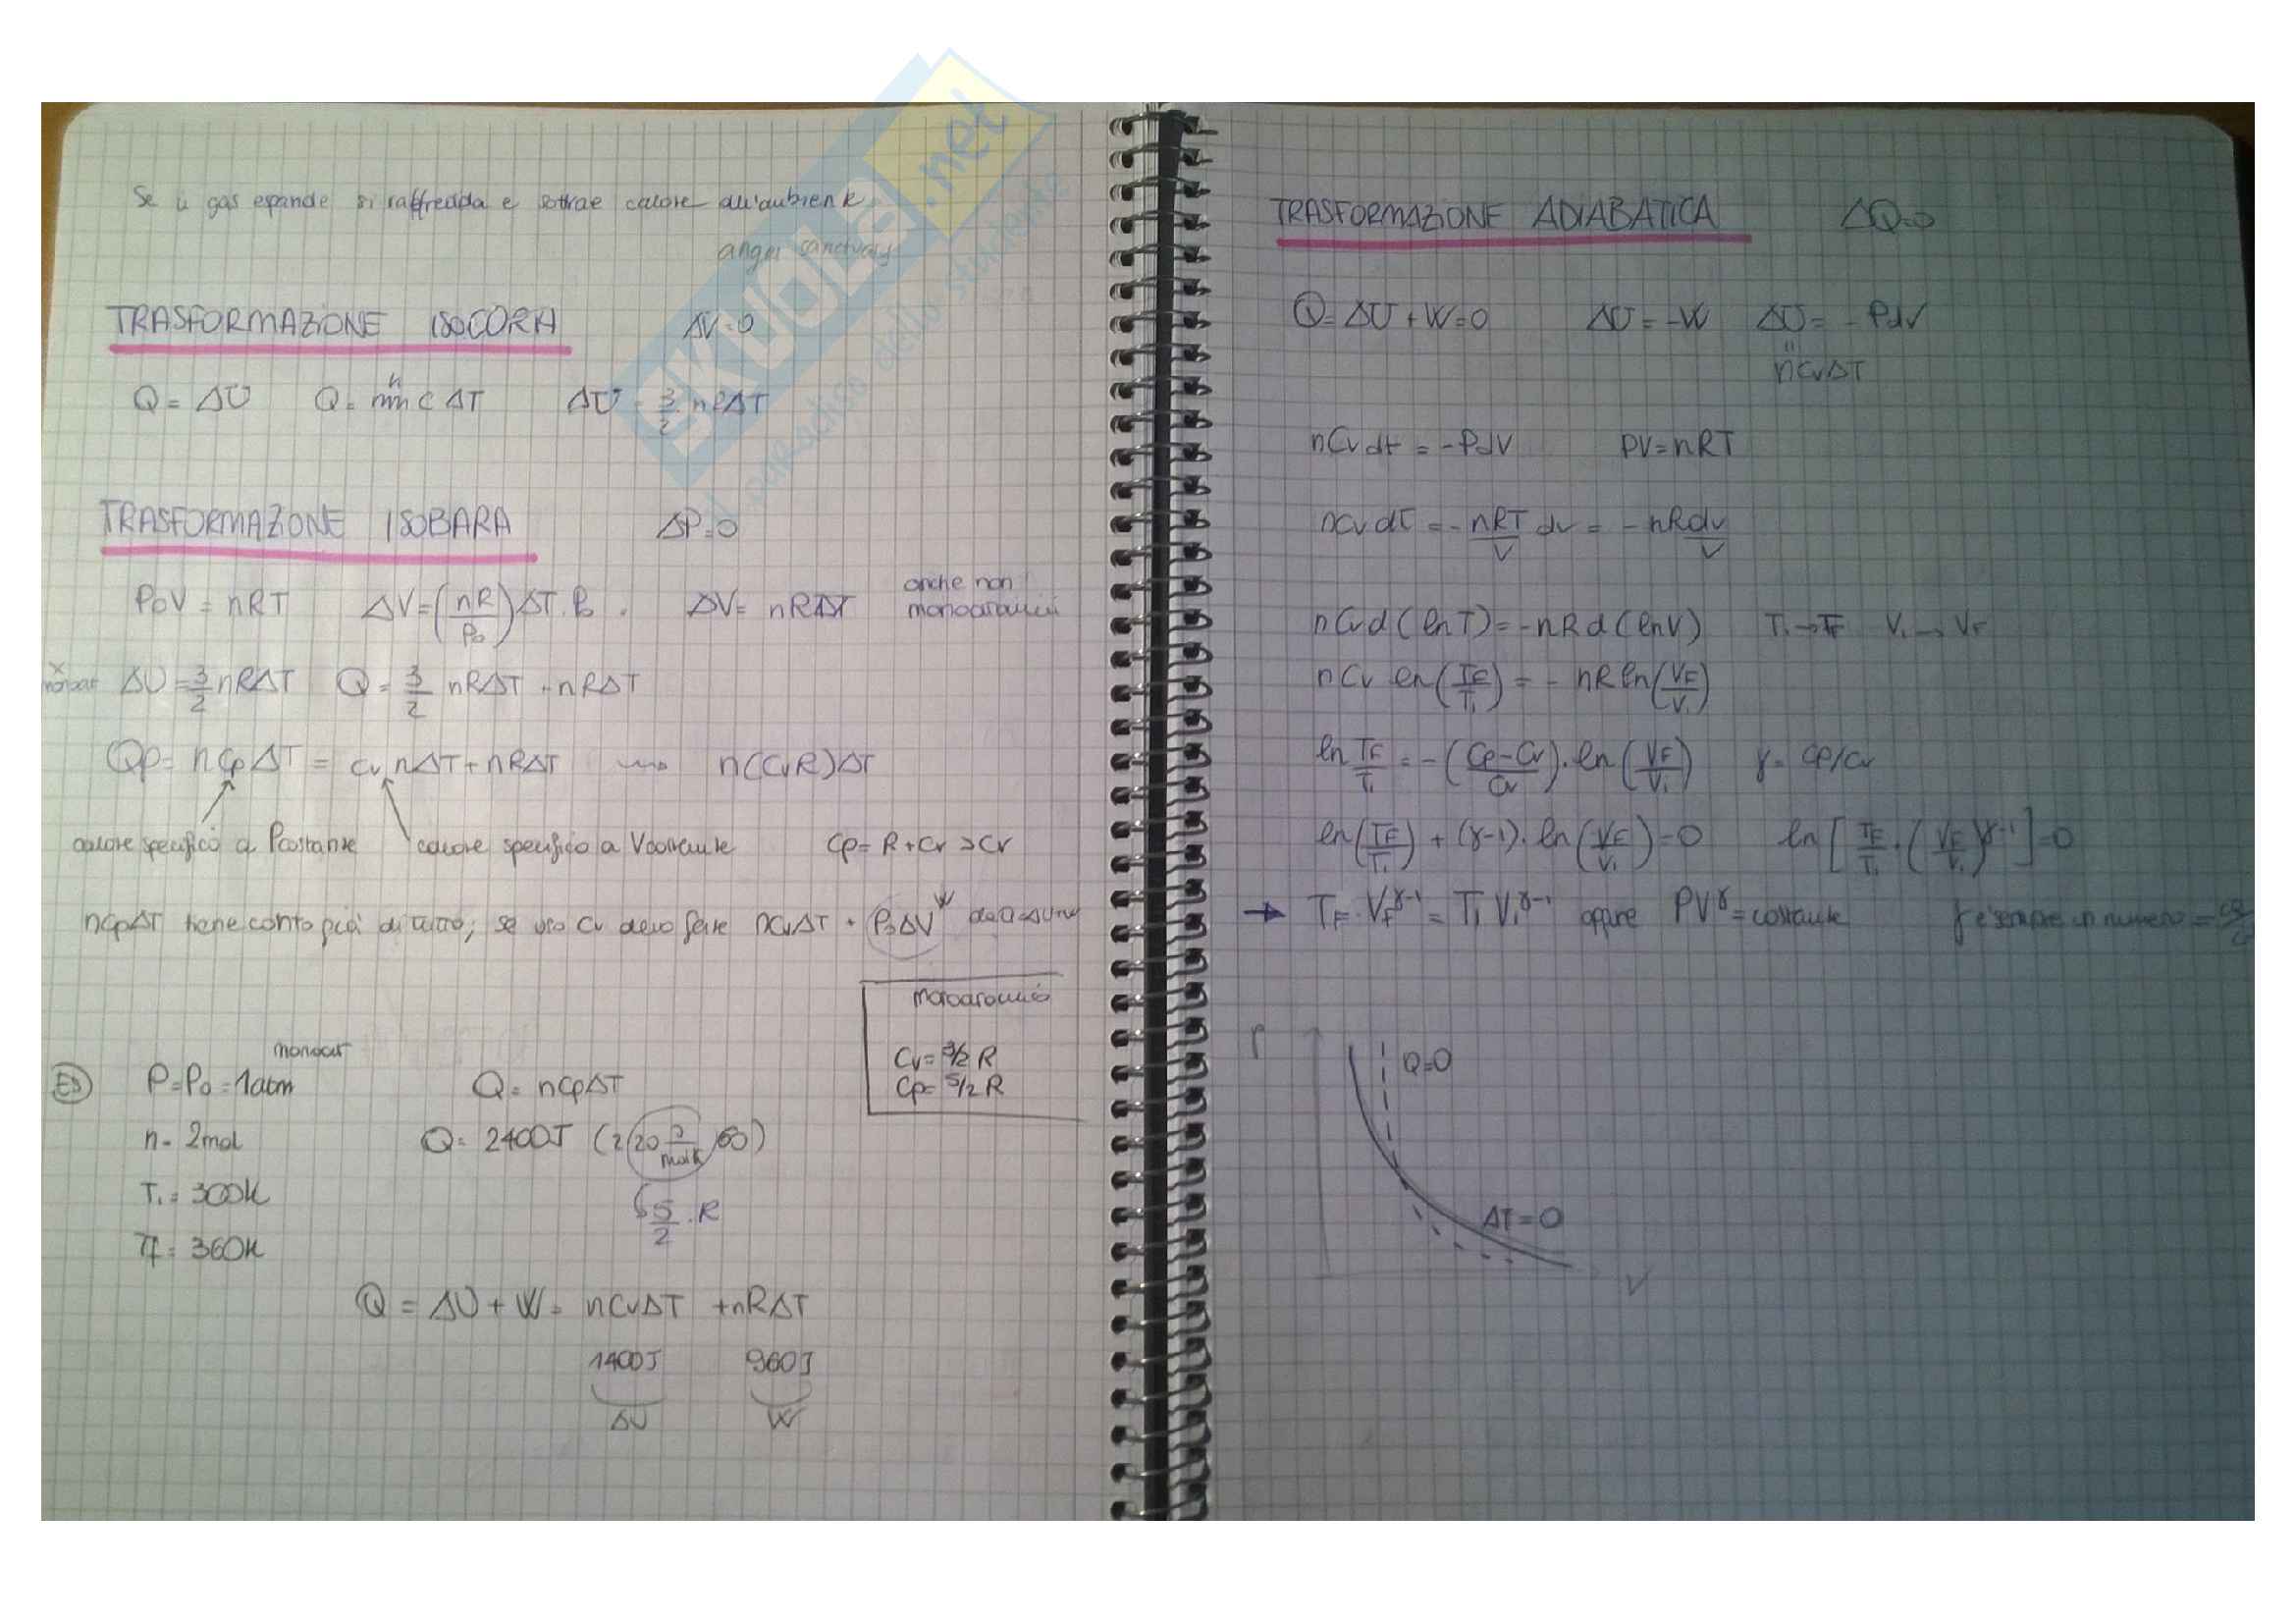 Se il gas espande si raffredda e sottrae calore all'ambiente
anger sanctuary
TRASFORMAZIONE ISOCORA ΔV=0
Q= ΔU Q= n c ΔT ΔU = 3/2 nRΔT
TRASFORMAZIONE ISOBARA ΔP=0
P₀V = nRT ΔV=(nR/P₀)ΔT·P₀ ΔV= nRΔT anche non monoatomici
x monoat ΔU=3/2 nRΔT Q=3/2 nRΔT+nRΔT
Qp= nCpΔT = CvnΔT+nRΔT n(CvR)ΔT
calore specifico a Pcostante calore specifico a Vcostante Cp= R+Cv >Cv
nCpΔT tiene conto già di tutto; se uso Cv devo fare nCvΔT + P₀ΔV W
monoatomico
Cv= 3/2 R
Cp= 5/2 R
Es P=P₀=1atm monoat Q= nCpΔT
n= 2mol Q= 2400J (2 20 J/molK 60)
T₁= 300K 5/2 ·R
Tf= 360K
Q = ΔU+W= nCvΔT +nRΔT
1400J 960J
ΔU W
TRASFORMAZIONE ADIABATICA ΔQ=0
Q= ΔU+W=0 ΔU=-W ΔU= -PdV
nCvΔT
nCvdt = -PdV PV=nRT
nCvdT = -nRT/V dv = -nRdv/V
nCvd(lnT)=-nRd(lnV) Ti→TF Vi→VF
nCv ln(TF/Ti) = - nRln(VF/Vi)
ln TF/Ti = -(Cp-Cv/Cv)·ln(VF/Vi) γ= Cp/Cv
ln(TF/Ti) + (γ-1)·ln(VF/Vi)=0 ln[TF/Ti·(VF/Vi)^γ-1]=0
→ TF·VF^γ-1 = Ti Vi^γ-1 oppure PV^γ=costante γ è sempre un numero = Cp/Cv
P
Q=0
ΔT=0
V
SKUOLA.net